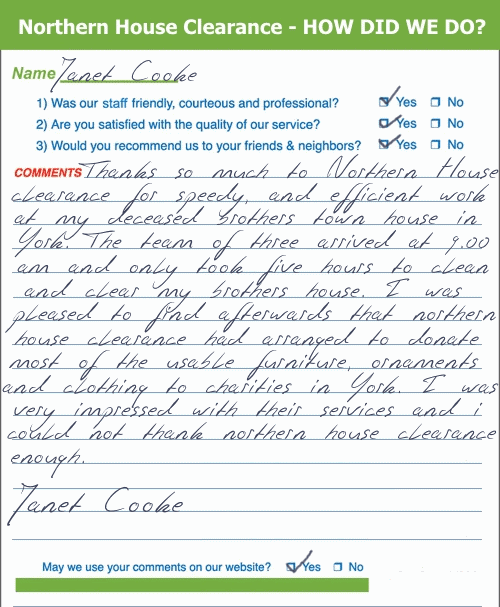 Northern House Clearance - HOW DID WE DO?
Name Janet Cooke
1) Was our staff friendly, courteous and professional? Yes No
2) Are you satisfied with the quality of our service? Yes No
3) Would you recommend us to your friends & neighbors? Yes No
COMMENTS Thanks so much to Northern House
clearance for speedy, and efficient work
at my deceased brothers town house in
York. The team of three arrived at 9.00
am and only took five hours to clean
and clear my brothers house. I was
pleased to find afterwards that northern
house clearance had arranged to donate
most of the usable furniture, ornaments
and clothing to charities in York. I was
very impressed with their services and i
could not thank northern house clearance
enough.
Janet Cooke
May we use your comments on our website? Yes No